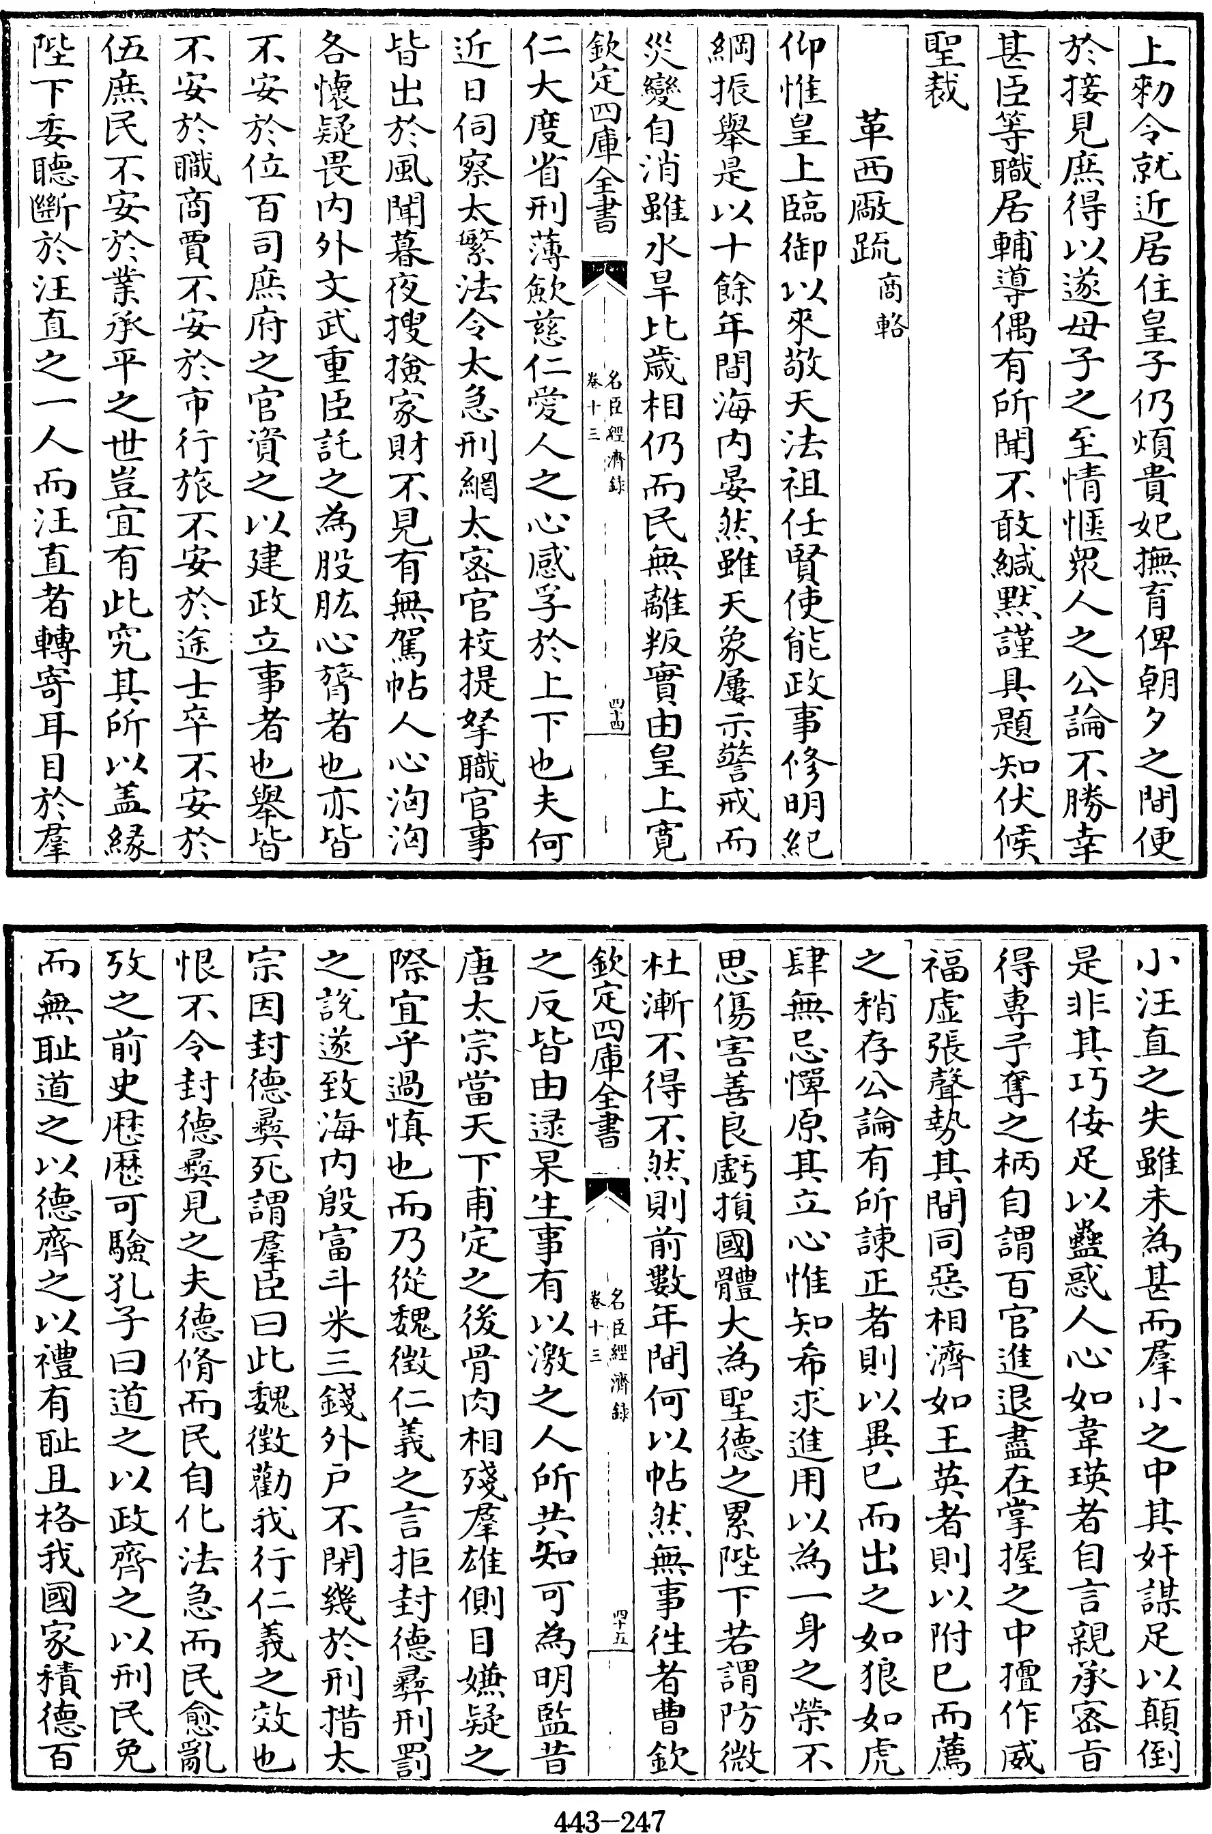 上勑令就近居住皇子仍煩貴妃撫育俾朝夕之間便
於接見庶得以遂母子之至情愜衆人之公論不勝幸
甚臣等職居輔導偶有所聞不敢緘默謹具題知伏候
聖裁
革西厰疏商輅
仰惟皇上臨御以來敬天法祖任賢使能政事修明紀
綱振舉是以十餘年間海内晏然雖天象屢示警戒而
災變自消雖水旱比歲相仍而民無離叛實由皇上寛
欽定四庫全書
名臣經濟錄
卷十三
四十四
仁大度省刑薄歛慈仁愛人之心感孚於上下也夫何
近日伺察太繁法令太急刑網太宻官校提拏職官事
皆出於風聞暮夜搜撿家財不見有無駕帖人心洶洶
各懷疑畏内外文武重臣託之為股肱心膂者也亦皆
不安於位百司庶府之官資之以建政立事者也舉皆
不安於職商賈不安於市行旅不安於途士卒不安於
伍庶民不安於業承平之世豈宜有此究其所以盖縁
陛下委聽斷於汪直之一人而汪直者轉寄耳目於羣
小汪直之失雖未為甚而羣小之中其奸謀足以顛倒
是非其巧佞足以蠱惑人心如韋瑛者自言親承宻旨
得專予奪之柄自謂百官進退盡在掌握之中擅作威
福虚張聲勢其間同惡相濟如王英者則以附已而薦
之稍存公論有所諫正者則以異已而出之如狼如虎
肆無忌憚原其立心惟知希求進用以為一身之榮不
思傷害善良虧損國體大為聖德之累陛下若謂防微
杜漸不得不然則前數年間何以帖然無事往者曹欽
欽定四庫全書
名臣經濟錄
卷十三
四十五
之反皆由逯杲生事有以激之人所共知可為明監昔
唐太宗當天下甫定之後骨肉相殘羣雄側目嫌疑之
際宜乎過慎也而乃從魏徵仁義之言拒封德彞刑罰
之說遂致海内殷富斗米三錢外户不閉幾於刑措太
宗因封德彞死謂羣臣曰此魏徴勸我行仁義之效也
恨不令封德彞見之夫德脩而民自化法急而民愈亂
攷之前史厯厯可驗孔子曰道之以政齊之以刑民免
而無耻道之以德齊之以禮有耻且格我國家積德百
443-247